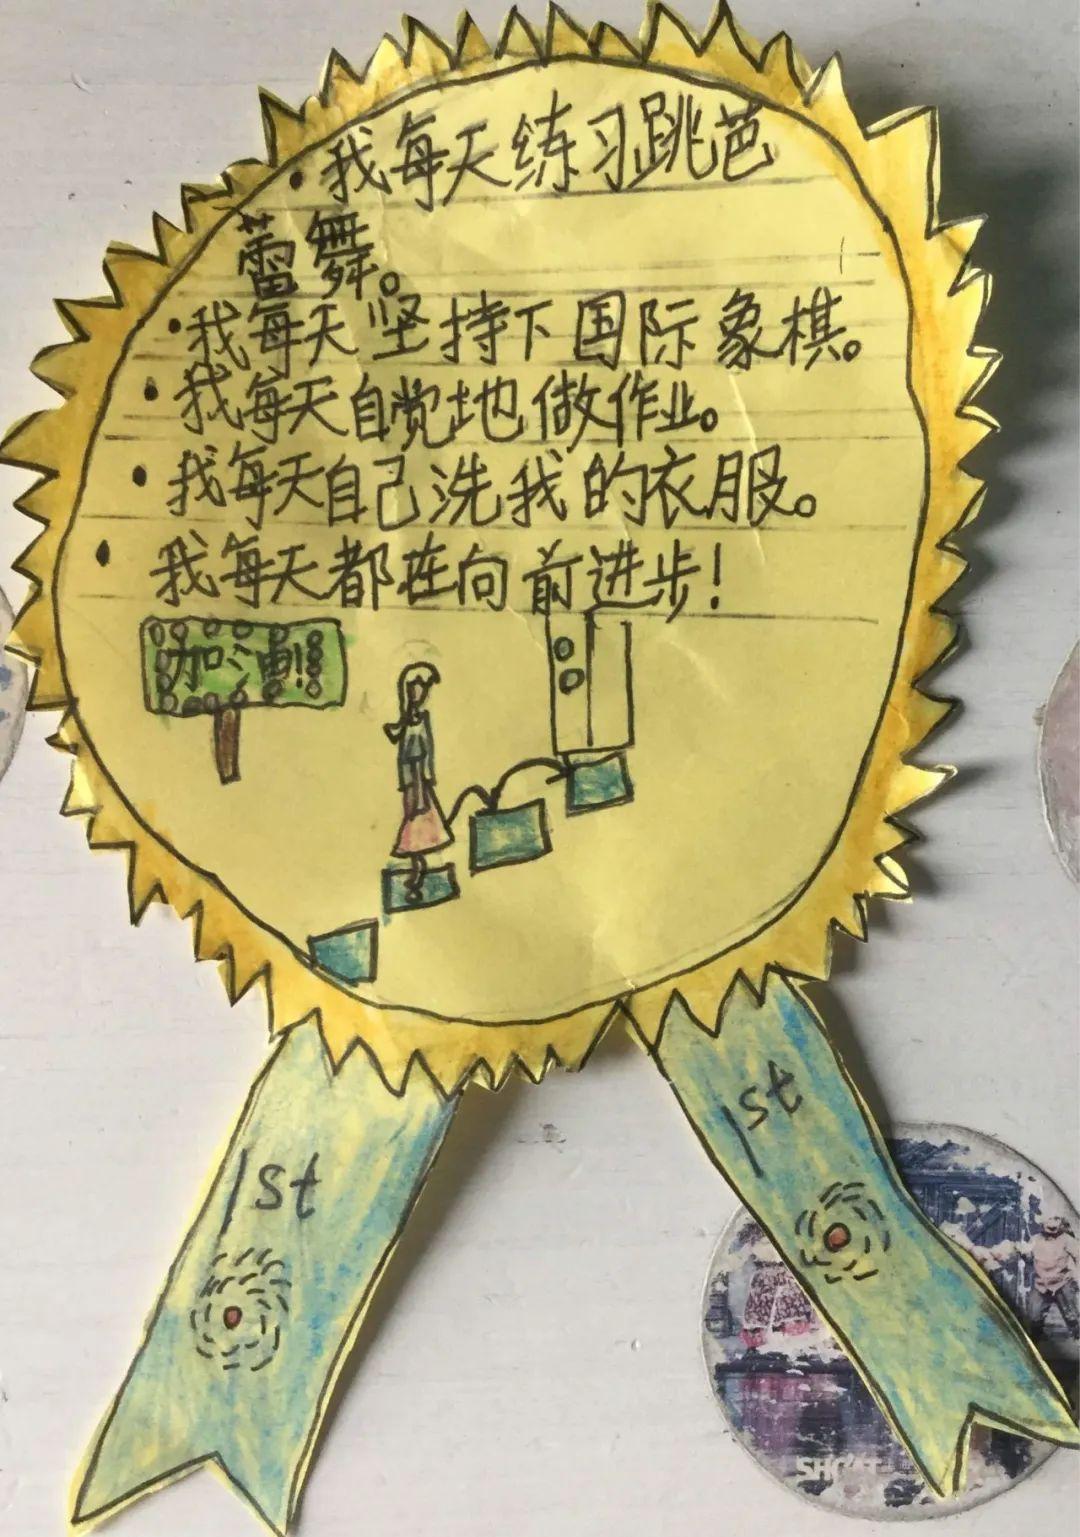 • 我每天练习跳芭
蕾舞。
• 我每天坚持下国际象棋。
• 我每天自觉地做作业。
• 我每天自己洗我的衣服。
• 我每天都在向前进步!
加油!
1st
1st